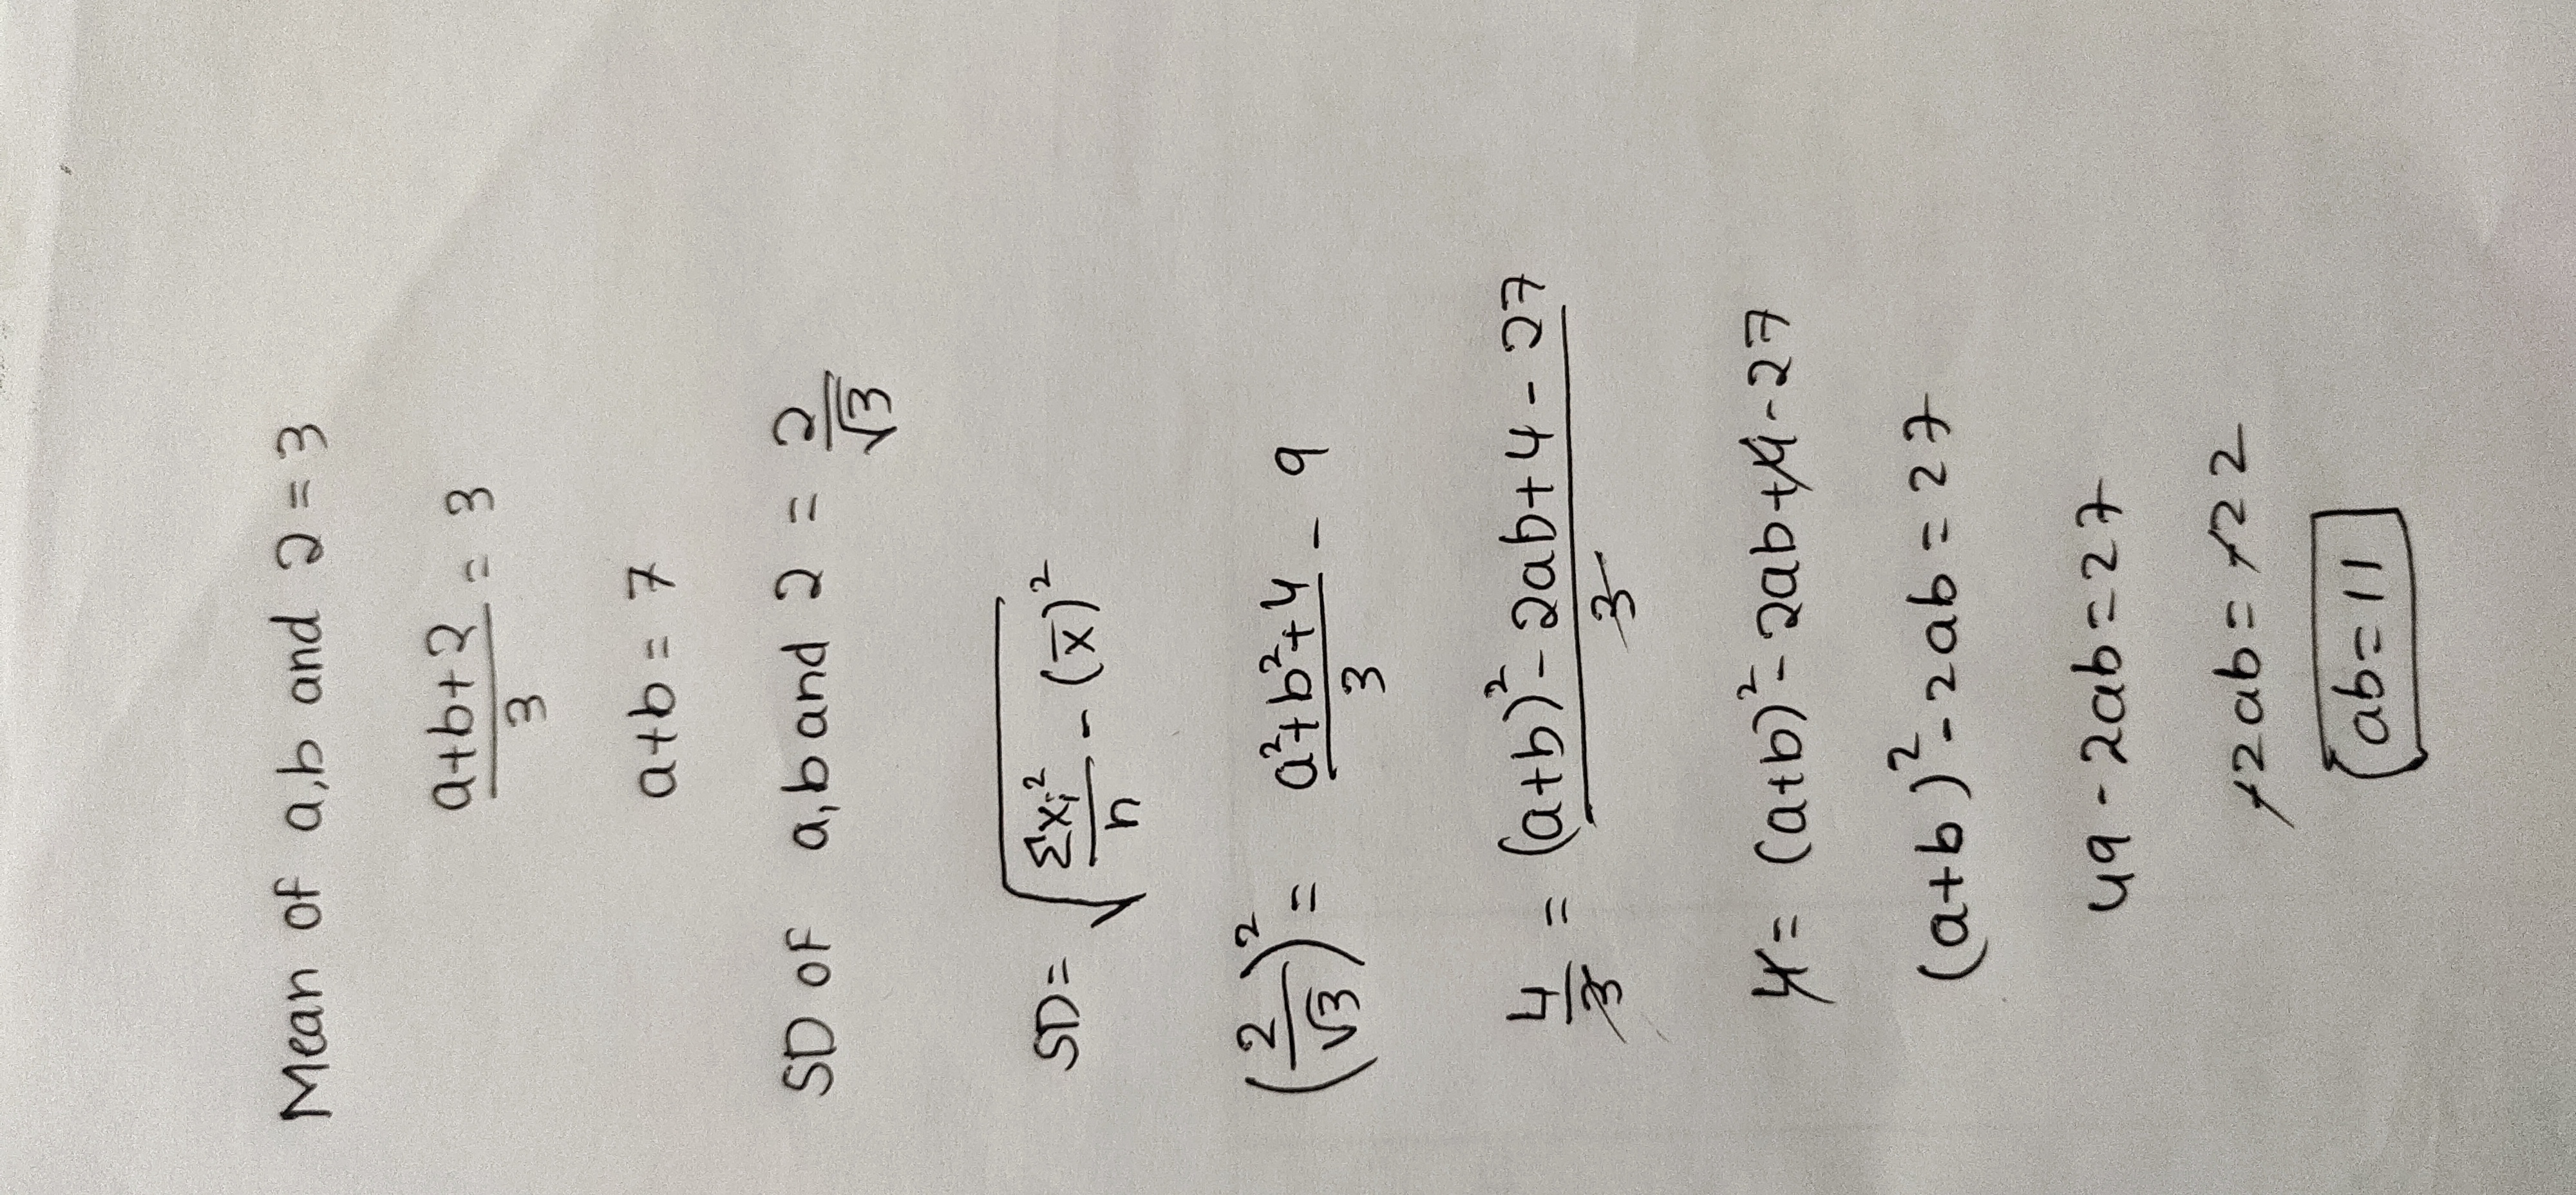 Mean of a,b and 2 = 3
(a+b+2)/3 = 3
a+b = 7
SD of a,b and 2 = 2/√3
SD = √(Σxi²/n - (x̄)²)
(2/√3)² = (a²+b²+4)/3 - 9
4/3 = ((a+b)² - 2ab + 4 - 27)/3
4 = (a+b)² - 2ab + 4 - 27
(a+b)² - 2ab = 27
49 - 2ab = 27
-2ab = -22
ab = 11